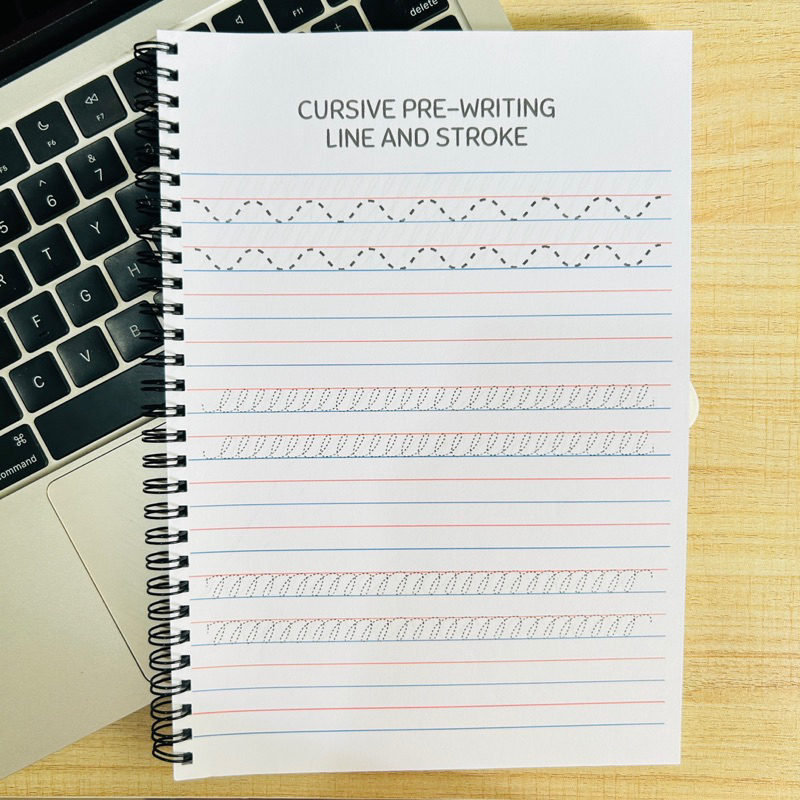 delete
F11
F7
F6
F5
&
7
^
6
5
Y
T
R
H
G
F
B
V
C
⌘
command
CURSIVE PRE-WRITING
LINE AND STROKE